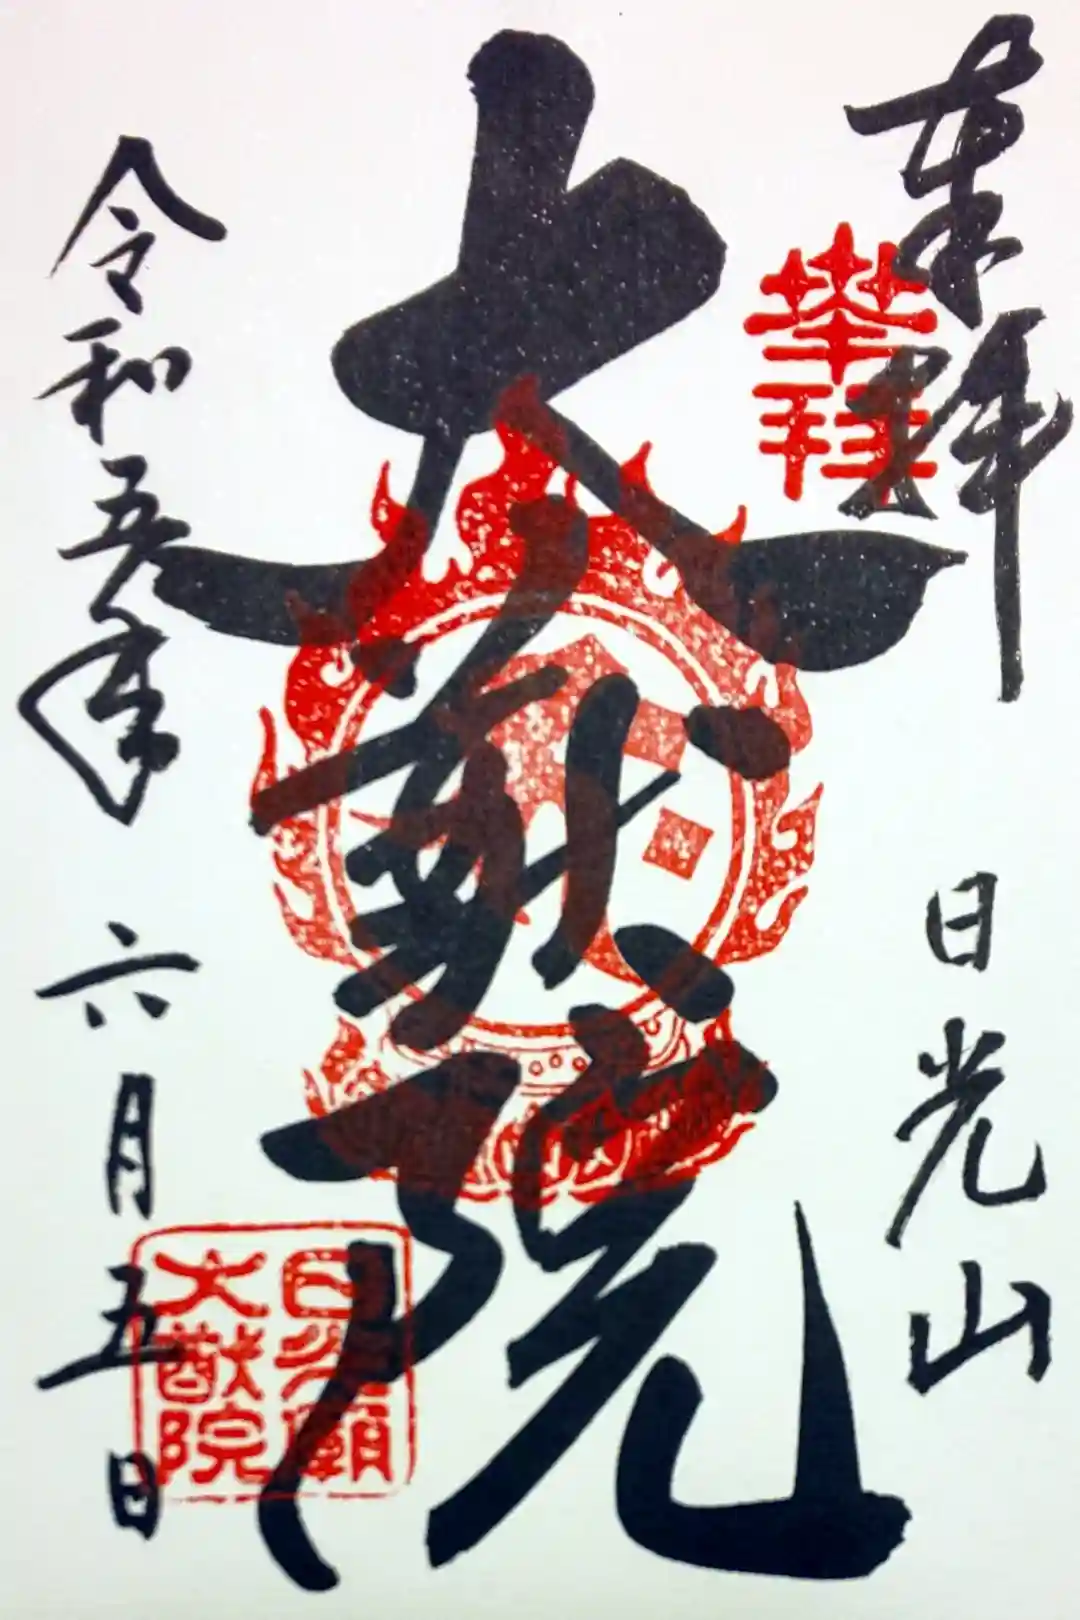 奉拝
日光山
大猷院
令和五年 六月五日
日光廟
大猷院